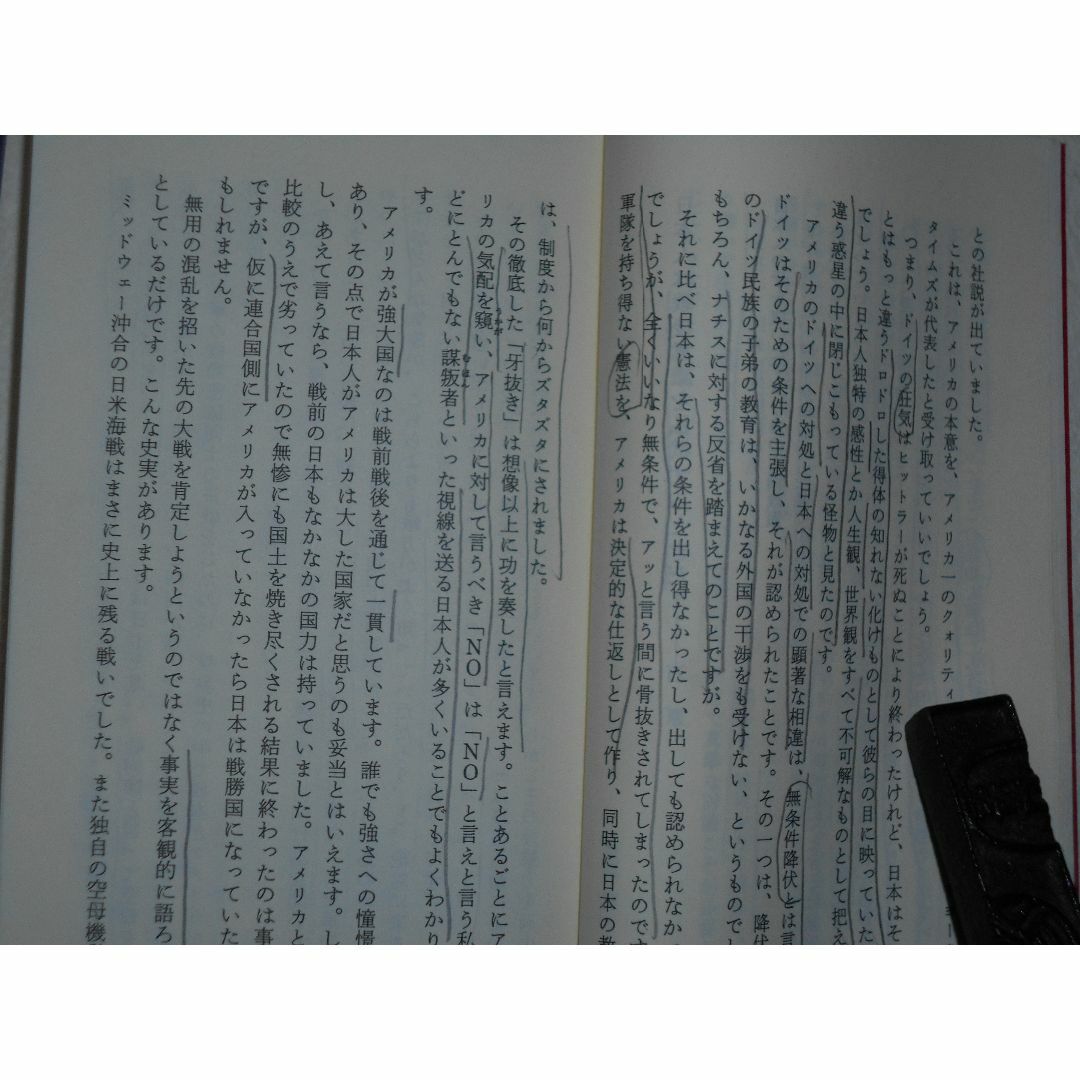 との社説が出ていました。
これは、アメリカの本意を、アメリカ一のクォリティ
タイムズが代表したと受け取っていいでしょう。
つまり、ドイツの狂気はヒットラーが死ぬことにより終わったけれど、日本はそ
とはもっと違うドロドロした得体の知れない化けものとして彼らの目に映っていた
でしょう。日本人独特の感性とか人生観、世界観をすべて不可解なものとして把え
違う惑星の中に閉じこもっている怪物と見たのです。
アメリカのドイツへの対処と日本への対処での顕著な相違は、無条件降伏とは言
ドイツはそのための条件を主張し、それが認められたことです。その一つは、降伏
のドイツ民族の子弟の教育は、いかなる外国の干渉をも受けない、というものでし
もちろん、ナチスに対する反省を踏まえてのことですが。
それに比べ日本は、それらの条件を出し得なかったし、出しても認められなか
でしょうが、全くいいなり無条件で、アッと言う間に骨抜きされてしまったのです
軍隊を持ち得ない憲法を、アメリカは決定的な仕返しとして作り、同時に日本の教
は、制度から何からズタズタにされました。
その徹底した「牙抜き」は想像以上に功を奏したと言えます。ことあるごとにア
リカの気配を窺い、アメリカに対して言うべき「NO」は「NO」と言えと言う私
どにとんでもない謀叛者といった視線を送る日本人が多くいることでもよくわかり
す。
アメリカが強大国なのは戦前戦後を通じて一貫しています。誰でも強さへの憧憬
あり、その点で日本人がアメリカは大した国家だと思うのも妥当とはいえます。し
し、あえて言うなら、戦前の日本もなかなかの国力は持っていました。アメリカと
比較のうえで劣っていたので無惨にも国土を焼き尽くされる結果に終わったのは事
ですが、仮に連合国側にアメリカが入っていなかったら日本は戦勝国になっていた
もしれません。
無用の混乱を招いた先の大戦を肯定しようというのではなく事実を客観的に語ろ
としているだけです。こんな史実があります。
ミッドウェー沖合の日米海戦はまさに史上に残る戦いでした。また独自の空母機